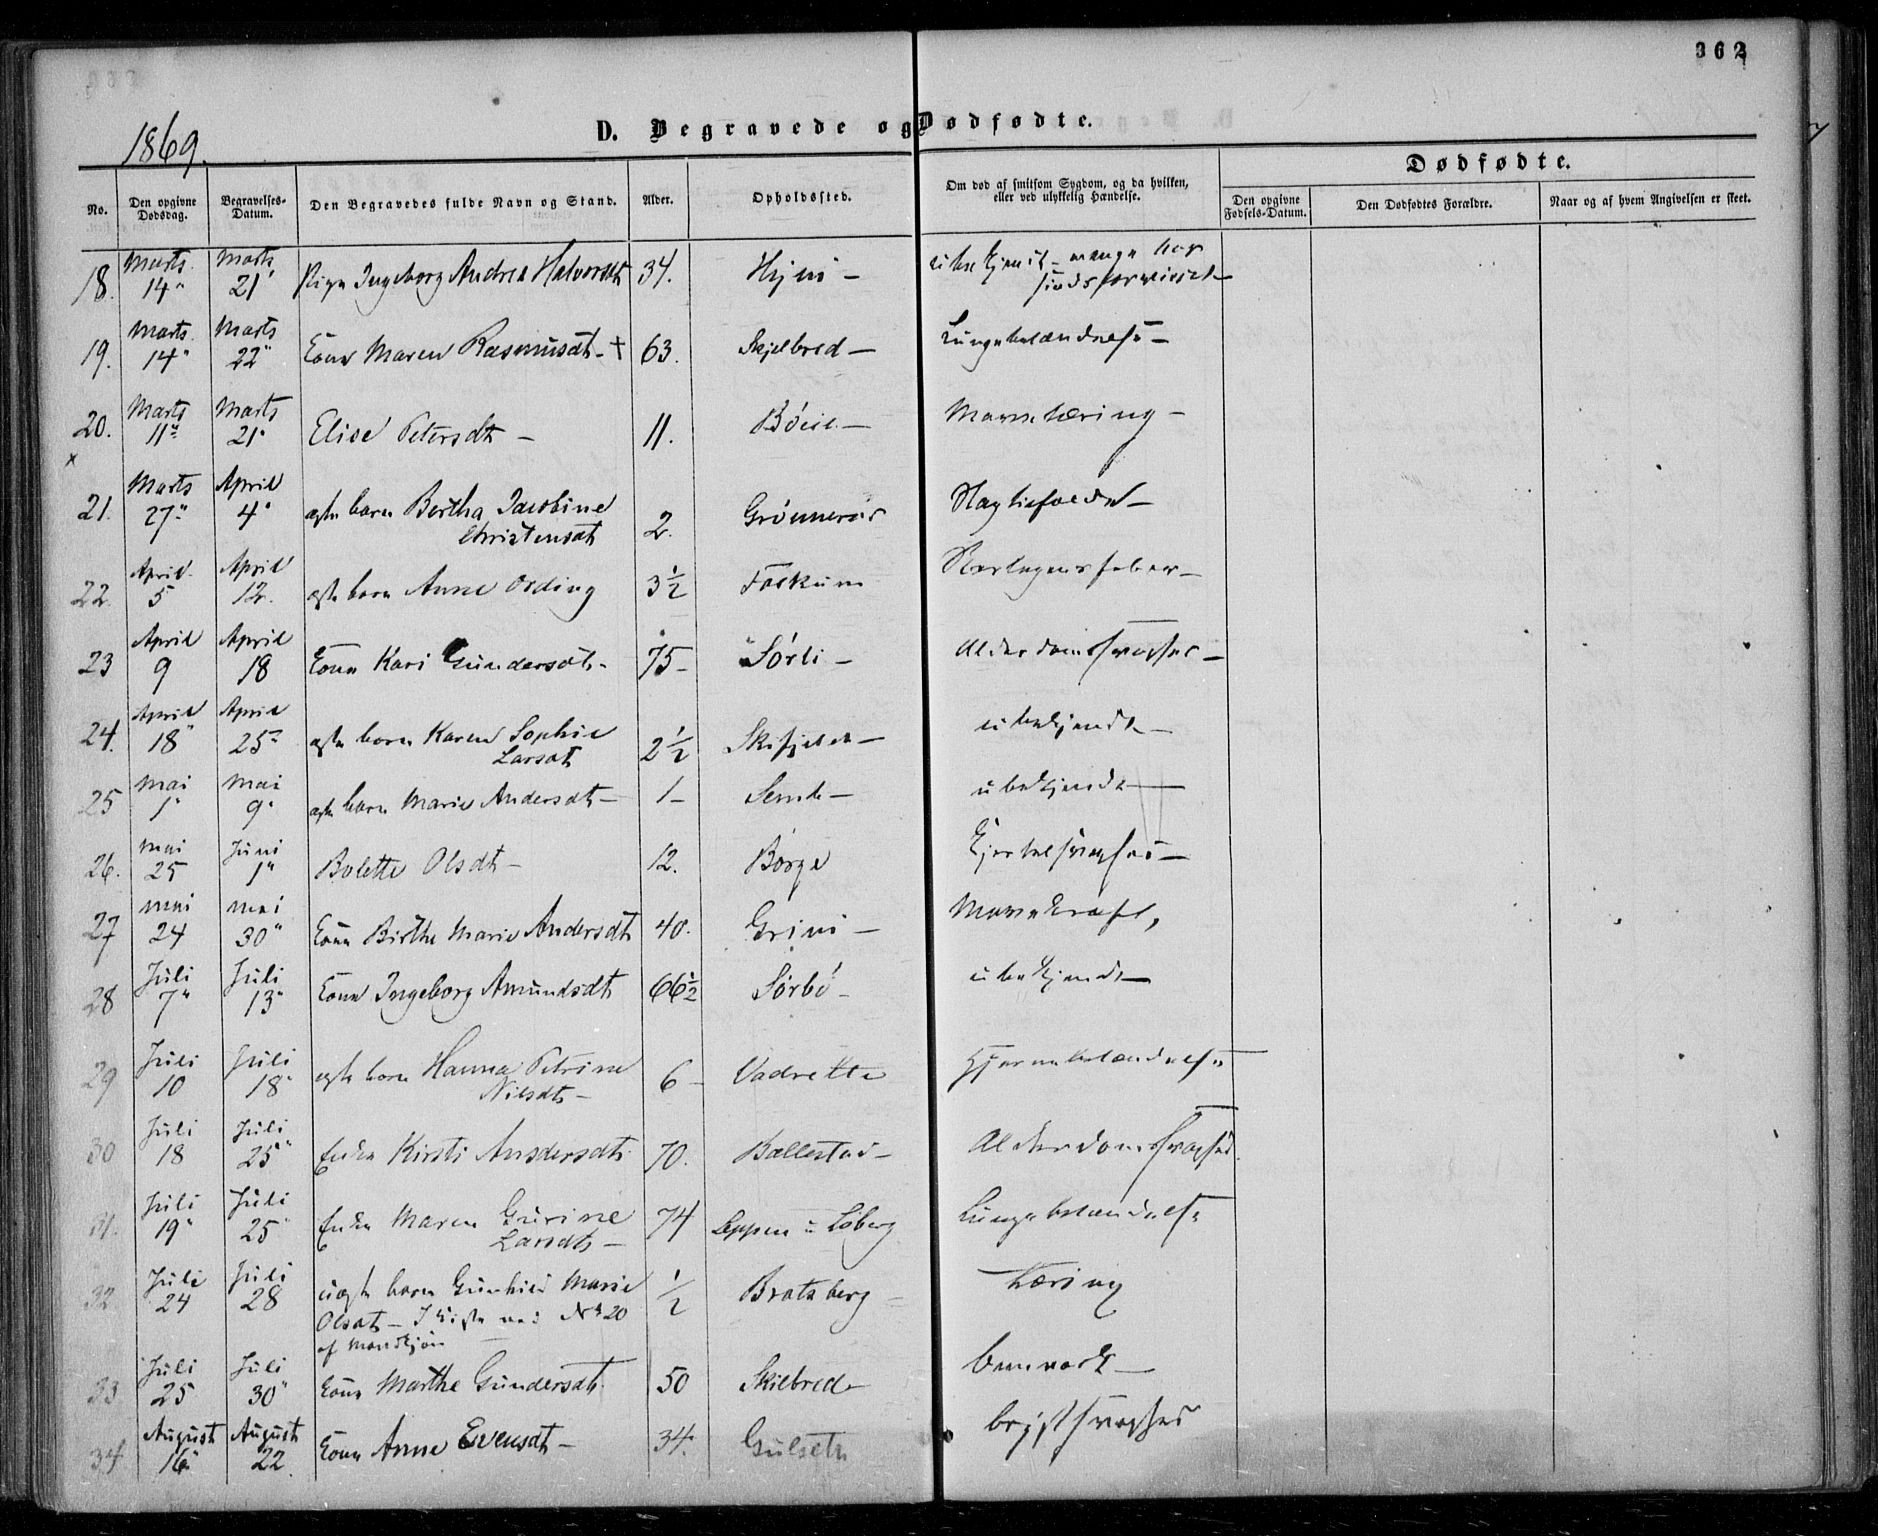 362
1869.
D. Begravede og Dødfødte.
No.
Den opgivne Dødsdag.
Begravelses-Datum.
Den Begravedes fulde Navn og Stand.
Alder.
Opholdssted.
Om død af smitsom Sygdom, og da hvilken, eller ved ulykkelig Hændelse.
Dødfødte.
Den opgivne Fødsels-Datum.
Den Dødfødtes Forældre.
Naar og af hvem Angivelsen er skeet.
18. Marts 14" Marts 21" Pige Ingeborg Andrea Halvorsdt 34. Hyni — ubekjendt — mange Aar
sindsforvirret —
19. Marts 14" Marts 22" Kone Maren Rasmusdt — † 63. Skjelbred — Lungebetændelse —
20. Marts 11" Marts 21" Elise Petersdt — 11. Bøeie — Mavetæring —
x
21. Marts 27" April 4" ægte barn Bertha Jacobine 2. Grønneraas
Christensdt
22. April 5 April 12. ægte barn Anne Ording 3½ Foskum Skarlagensfeber —
23 April 9 April 18 Kone Kari Gundersdt. 75 — Sørli — Alderdomssvaghed —
24. April 18" April 25" ægte barn Karen Sophie 2½ ubekjendt —
Larsdt
25 Mai 1" Mai 9" ægte barn Marie Andersdt — 1 — Semb — ubekjendt —
26. Mai 25 Juni 1" Bolette Olsdt — 12. Borge Kjertelsvaghed —
27 Mai 24 Mai 30" Kone Birthe Marie Andersdt 40. Grini — Mavekræft,
28 Juli 7" Juli 13" Kone Ingeborg Amundsdt 66½ Sørbø — ubekjendt —
29 Juli 10 Juli 18" ægte barn Hanna Petrine 6 — Vadrette Hjernebetændelse
Nilsdt —
30 Juli 18 Juli 25" Enke Kirsti Andersdt. 70. Ballestad — Alderdomssvaghed
31. Juli 19" Juli 25" Enke Maren Gurine 74 Loberg Lungebetændelse
Larsdt —
32 Juli 24 Juli 28 uægte barn Gunhild Marie ½ Bratsberg — Tæring
Olsdt — I Kiste med No 20
af Mandkjøn
33 Juli 25 Juli 30" Kone Marthe Gundersdt. 50 Skilbred —
34 August 16" August 22. Kone Anne Evensdt — 34. Gulseth brystsvaghed